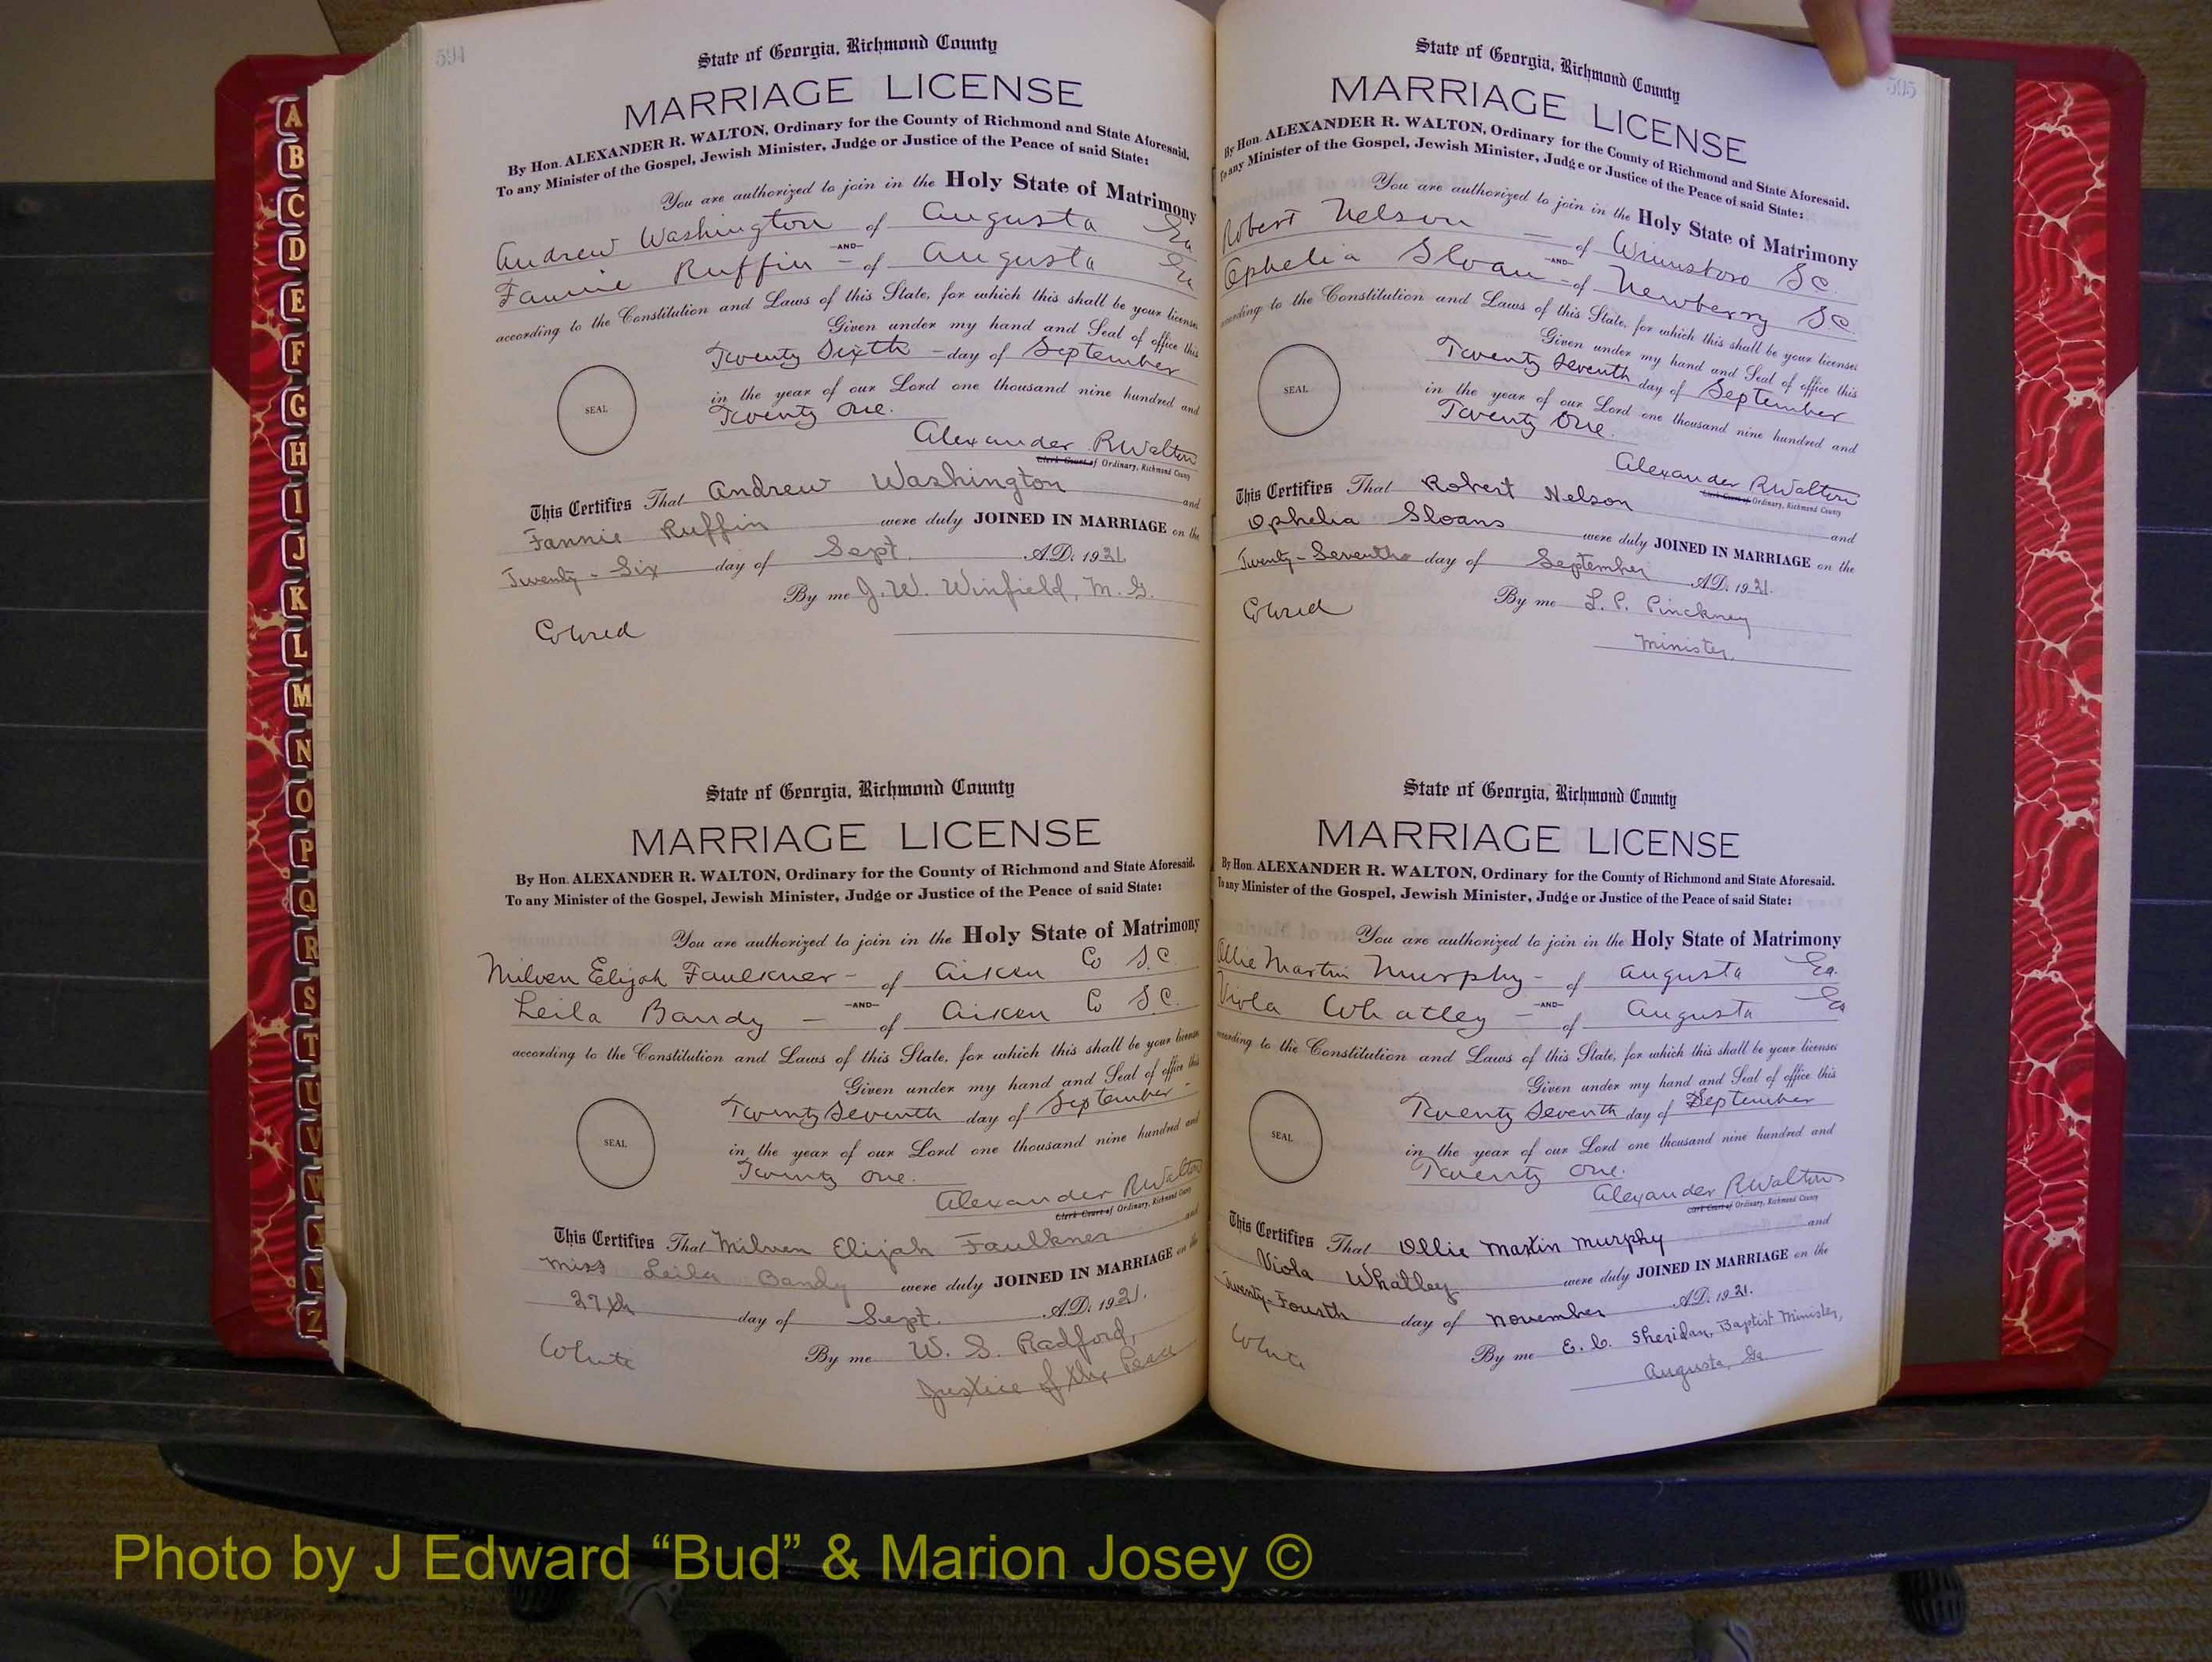 594
State of Georgia, Richmond County
MARRIAGE LICENSE
By Hon. ALEXANDER R. WALTON, Ordinary for the County of Richmond and State Aforesaid.
To any Minister of the Gospel, Jewish Minister, Judge or Justice of the Peace of said State:
You are authorized to join in the Holy State of Matrimony
Andrew Washington of Augusta Ga
—AND—
Fannie Ruffin - of Augusta Ga
according to the Constitution and Laws of this State, for which this shall be your license
Given under my hand and Seal of office this
Twenty Sixth - day of September
in the year of our Lord one thousand nine hundred and
SEAL
Twenty One.
Alexander R Walton
Clerk Court of Ordinary, Richmond County
This Certifies That Andrew Washington and
Fannie Ruffin were duly JOINED IN MARRIAGE on the
Twenty-Six day of Sept. A.D. 1921
By me J. W. Winfield, M. G.
Colored
State of Georgia, Richmond County
MARRIAGE LICENSE
By Hon. ALEXANDER R. WALTON, Ordinary for the County of Richmond and State Aforesaid.
To any Minister of the Gospel, Jewish Minister, Judge or Justice of the Peace of said State:
You are authorized to join in the Holy State of Matrimony
Milven Elijah Faulkner - of Aiken Co S.C.
—AND—
Leila Bandy — of Aiken Co S.C.
according to the Constitution and Laws of this State, for which this shall be your license
Given under my hand and Seal of office this
Twenty Seventh day of September
SEAL
in the year of our Lord one thousand nine hundred and
Twenty One.
Alexander R Walton
Clerk Court of Ordinary, Richmond County
This Certifies That Milven Elijah Faulkner and
Miss Leila Bandy were duly JOINED IN MARRIAGE on the
27th day of Sept. A.D. 1921.
By me W. S. Radford,
White
Justice of the Peace
595
State of Georgia, Richmond County
MARRIAGE LICENSE
By Hon. ALEXANDER R. WALTON, Ordinary for the County of Richmond and State Aforesaid.
To any Minister of the Gospel, Jewish Minister, Judge or Justice of the Peace of said State:
You are authorized to join in the Holy State of Matrimony
Robert Nelson — of Winnsboro S.C.
—AND—
Ophelia Sloan - of Newberry S.C.
according to the Constitution and Laws of this State, for which this shall be your license
Given under my hand and Seal of office this
Twenty Seventh day of September
SEAL
in the year of our Lord one thousand nine hundred and
Twenty One.
Alexander R Walton
Clerk Court of Ordinary, Richmond County
This Certifies That Robert Nelson and
Ophelia Sloans were duly JOINED IN MARRIAGE on the
Twenty-Seventh day of September A.D. 1921.
By me L. P. Pinckney
Colored
Minister
State of Georgia, Richmond County
MARRIAGE LICENSE
By Hon. ALEXANDER R. WALTON, Ordinary for the County of Richmond and State Aforesaid.
To any Minister of the Gospel, Jewish Minister, Judge or Justice of the Peace of said State:
You are authorized to join in the Holy State of Matrimony
Ollie Martin Murphy - of Augusta Ga.
—AND—
Viola Whatley - of Augusta Ga
according to the Constitution and Laws of this State, for which this shall be your license
Given under my hand and Seal of office this
Twenty Seventh day of September
SEAL
in the year of our Lord one thousand nine hundred and
Twenty One.
Alexander R Walton
Clerk Court of Ordinary, Richmond County
This Certifies That Ollie Martin Murphy and
Viola Whatley were duly JOINED IN MARRIAGE on the
Twenty-Fourth day of November A.D. 1921.
By me E. C. Sheridan, Baptist Minister,
White
Augusta, Ga.
A
B
C
D
E
F
G
H
I
J
K
L
M
N
O
P
Q
R
S
T
U
V
W
Z
Photo by J Edward “Bud” & Marion Josey ©